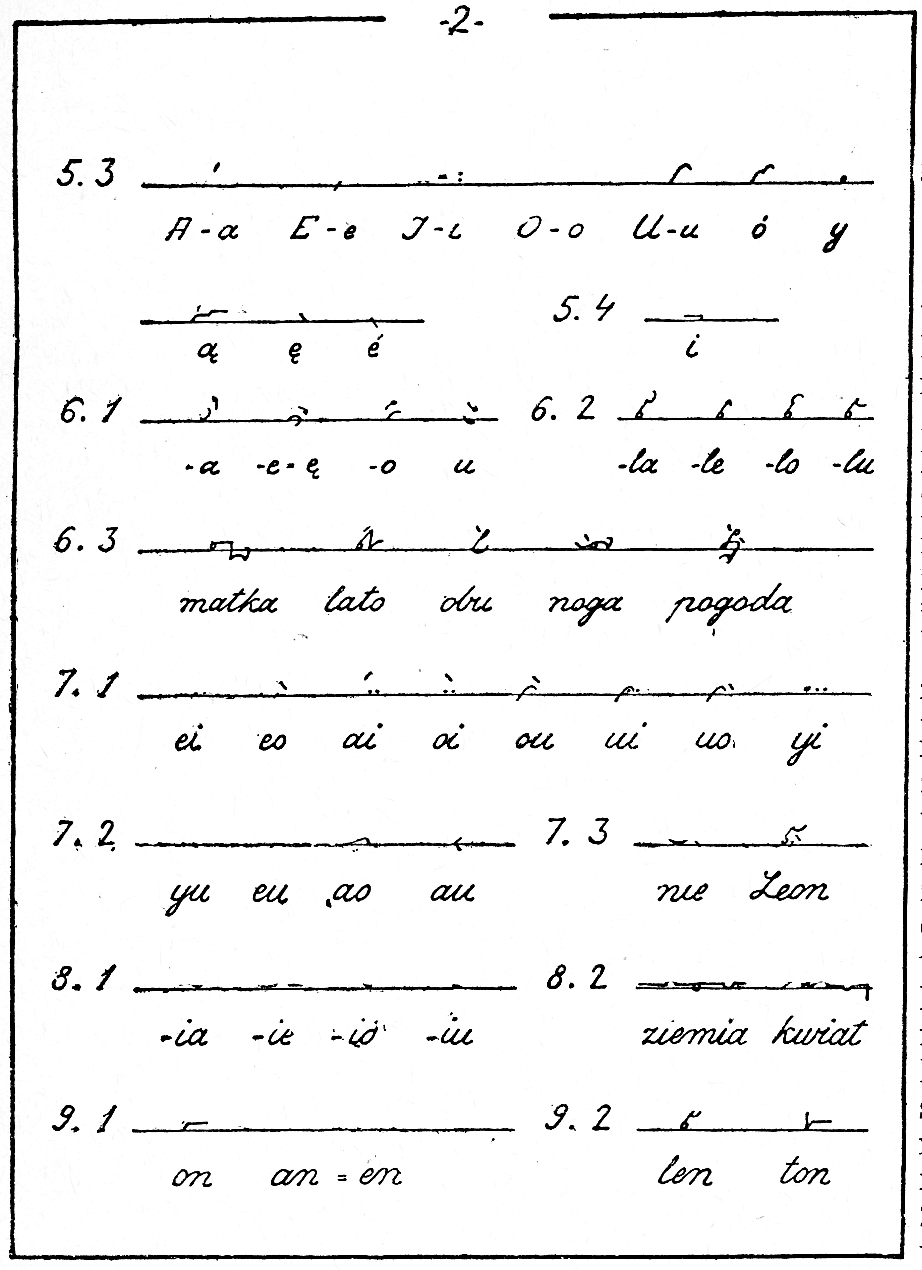 -2-
5.3
A-a E-e I-i O-o U-u ó y
5.4
ą ę é i
6.1 6.2
-a -e-ę -o u -la -le -lo -lu
6.3
matka lato obu noga pogoda
7.1
ei eo ai oi ou ui uo yi
7.2 7.3
yu eu ao au nie Leon
8.1 8.2
-ia -ie -io -iu ziemia kwiat
9.1 9.2
on an = en len ton